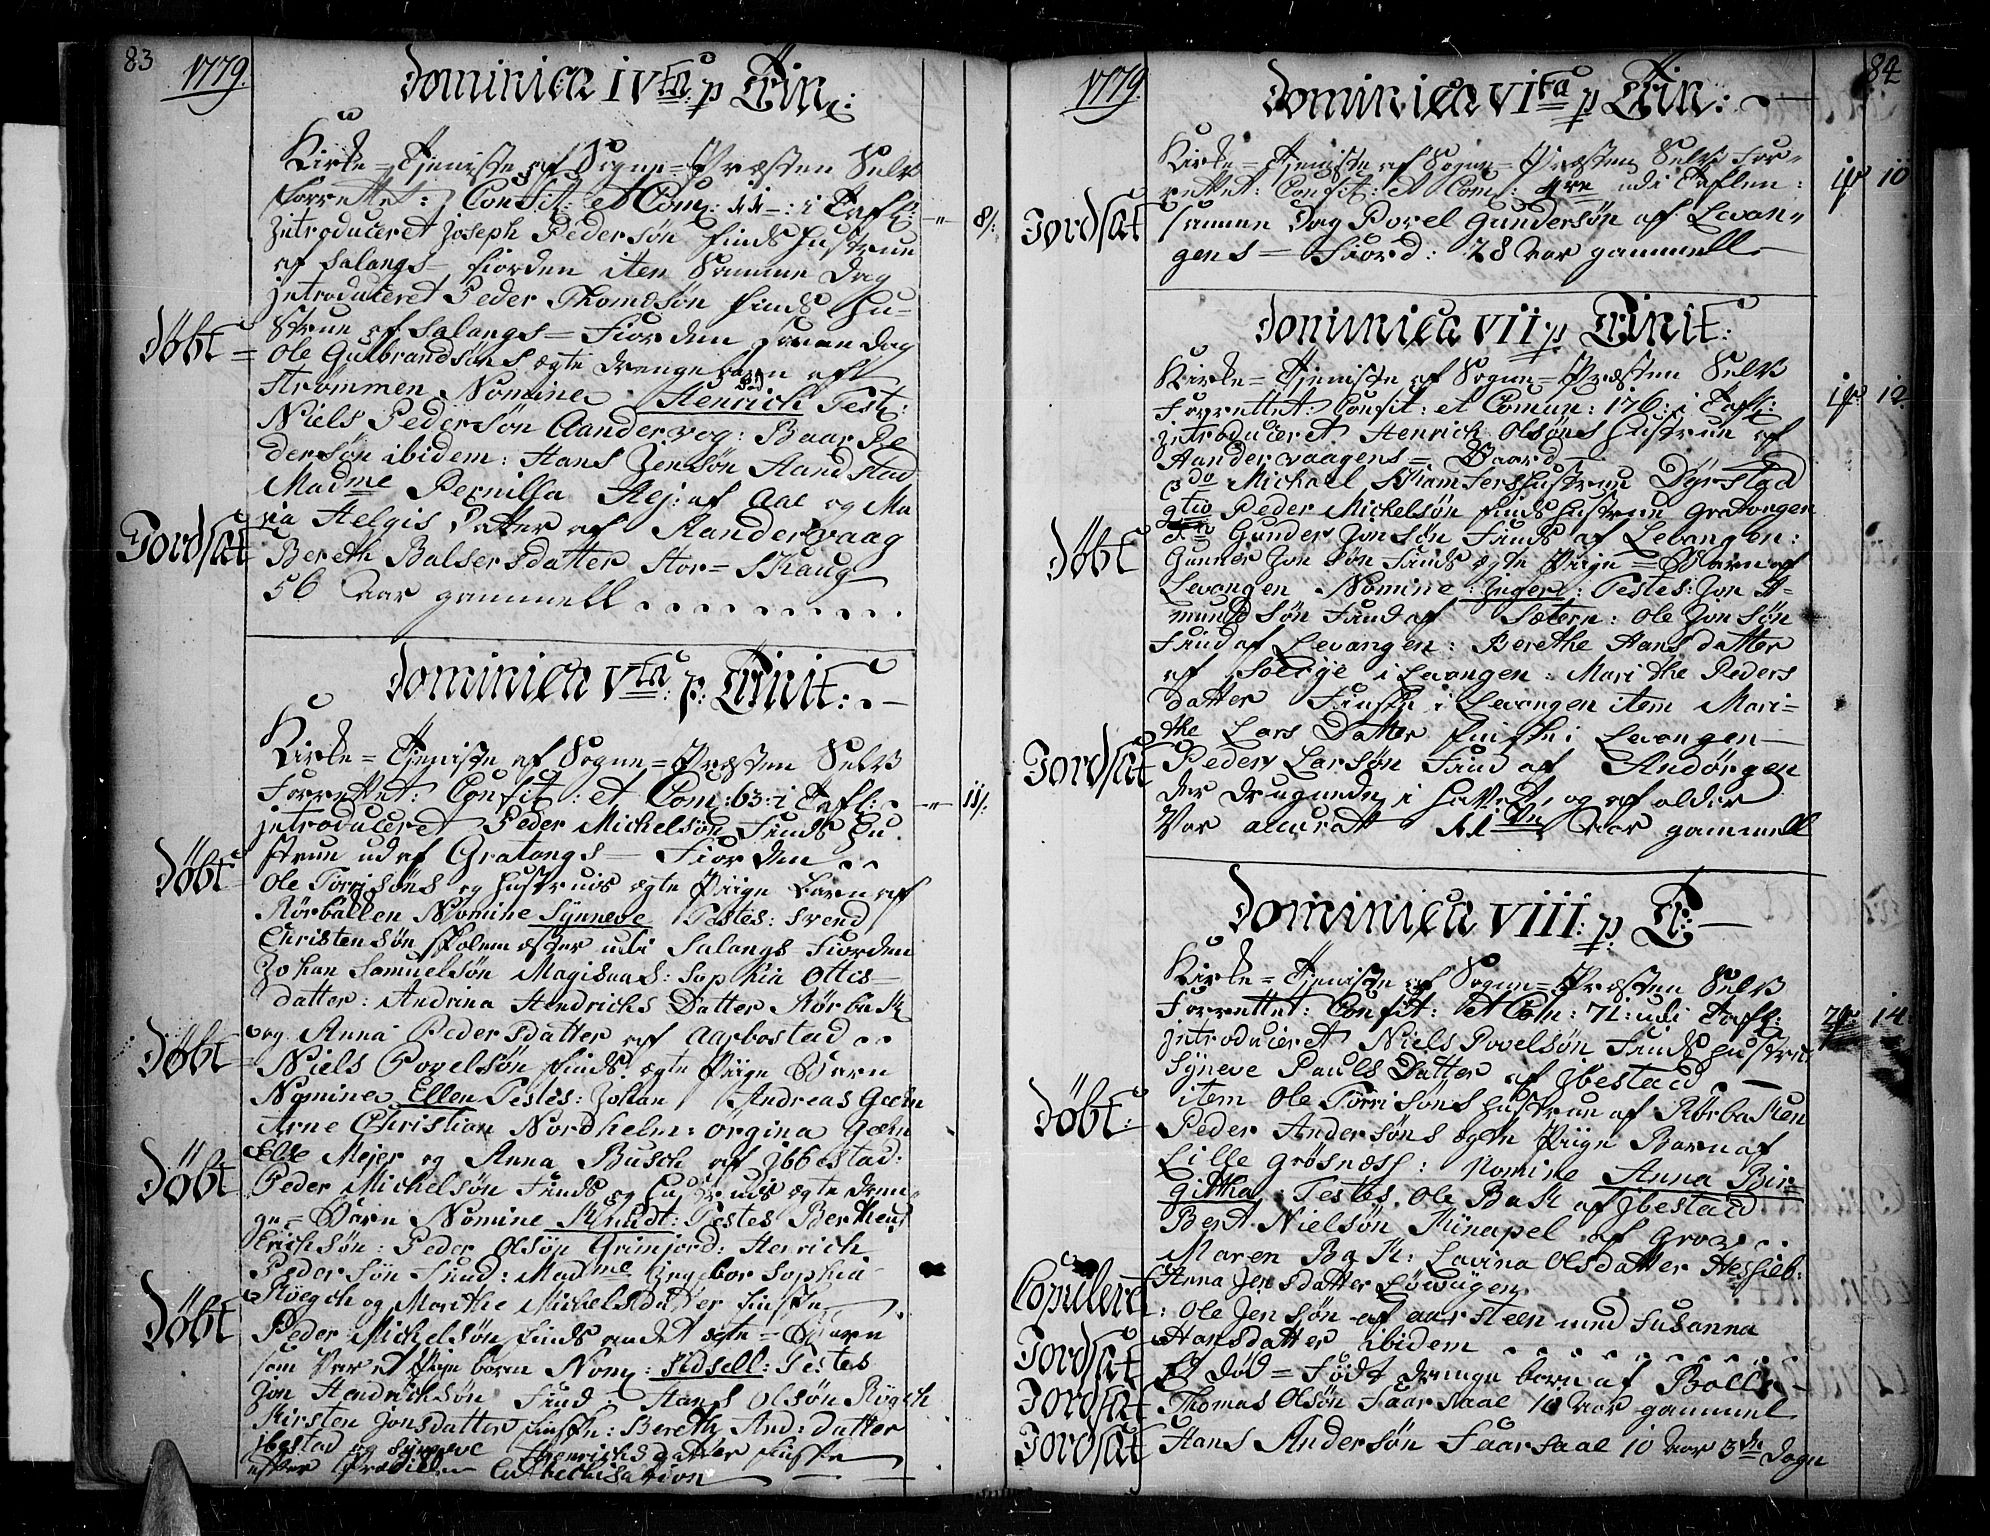 83
1779.
Dominica IVta p Trin:
Kirke=Tjeniste af Sogne=Præsten Selv
forrettet: Confit: et Com: 44 : i Tafl:
8/:
Introduceret Joseph Pedersøn finds hustrue
af Salangs=fiorden item Samme Dag
introduceret Peder Thomæsøn finds Hu=
strue af Salangs=Fiorden Samme dag
Døbt = Ole Gulbrandsøns ægte drenge barn af
Strømmen Nomine Henrich Test:
Niels Pedersøn Aandervog: Baar Pe
dersøn ibidem: Hans Jensøn Aandstad
Madme Pernilla Hej: af Aae og Ma
ria Helgis Datter af Aandervaag
Jordsat Bereth Balsersdatter Stor=Skaug
56 Aar gammell
Dominica Vta p: Trinit:
Kirke=Tjeniste af Sogne=Præsten Selv
Forrettet: Confit: et Com: 63: i Tafl:
11/:
introduceret Peder Michelsøn Finds Hu
strue ud af Gratangs=Fiorden
Døbt Ole Torrisøns og hustrues ægte Piige Barn af
Rørbakken Nomine Synneve Testes: Svend
Christensøn skolemæster udi Salangs Fiorden
Johan Samuelsøn Magisnas: Sophia Ottis=
datter: Andrina Hendrichs Datter Rørbak
og Anna Pedersdatter af Aarbostad
Døbt Niels Povelsøn finds ægte Piige Barn
Nomine Ellen Testes: Johan Andreas Geem
Arne Christian Nordhelm: Orgina Geem
Else Mejer og Anna Busch af Ibbestad:
Døbt Peder Michelsøn Finds og hustrues ægte dren
ge=Barn Nomine Knudt: Testes Bertheus
Erichsøn: Peder Olsøn Grimjord: Henrich
Pedersøn Find: Madme Ingebor Sophia
Røegch og Marithe Michelsdatter finske
Døbt Peder Michelsøn finds andet ægte=Barn
som Var et Piige barn Nom: Sidsell: Testes
Jon Hendrichsøn Find: Hans Olsøn Røgch
Kirsten Jonsdatter finske: Bereth And: datter
Ibestad og Synneve Henrichsdatter finske
efter Catechisation
84
1779.
Dominica VIta p Trin:
Kirke=Tjeniste af Sogne=Præsten Selv For=
rettet: Confit: et Com: 4re udi Taflen:
10
Jordsat samme Dag Povel Gundersøn af Levan=
gens=Fiord: 28 Aar gammell
Dominica VII p Trinit:
Kirke=Tjeniste af Sogne=Præsten Selv
Forrettet: Confit: et Comun: 176: i Tafl:
12
introduceret Henrich Olsøns hustrue af
Aandervaagens=Vaard
2do Michael Kiemfers hustrue Dyrstad
3tio Peder Michelsøn finds hustrue Gratangen
Gunder Jonsøn Finds af Levangen:
Døbt Gunner Jonsøn Finds ægte Piige=Barn af
Levangen Nomine: Inger: Testes: Jon A=
mundsøn Find af Sætern: Ole Jonsøn
Find af Levangen: Berethe Hansdatter
af Soelye i Levangen: Marithe Peders
datter Finske i Levangen item Mari=
the Lars Datter finske i Levangen
Jordsat Peder Larsøn Find af Andørgen
der druguede i havet, og af alder
Var accurat 41 Aar gammell
Dominica VIII: p: T:
Kirke=Tjeniste af Sogne=Præsten Selv
Forrettet: Confit: et Com: 71: udi Tafl:
14:
introduceret Niels Povelsøn Finds hustrue
Syneve Pauls Datter af Ibestad
item Ole Torrisøns hustrue af Rørbakken
Døbt: Peder Andersøns ægte Piige Barn af
Lille Grøsnæss: Nomine Anna Bir
githa: Testes. Ole Bak af Ibestad
Bent Nielsøn Kinapel af Grov
Maren Bak: Lavina Olsdatter Hessieb:
Anna Jensdatter Løwiigen
Copuleret: Ole Jensøn af Aarsteen med Susanna
Hansdatter ibidem
Jordsat Et død=Født drenge barn af Bolle
Jordsat Thomas Olsøn Faarsaae 10 Aar gammel
Jordsat Hans Andersøn Faarsaae 10 Aar 3de Dage